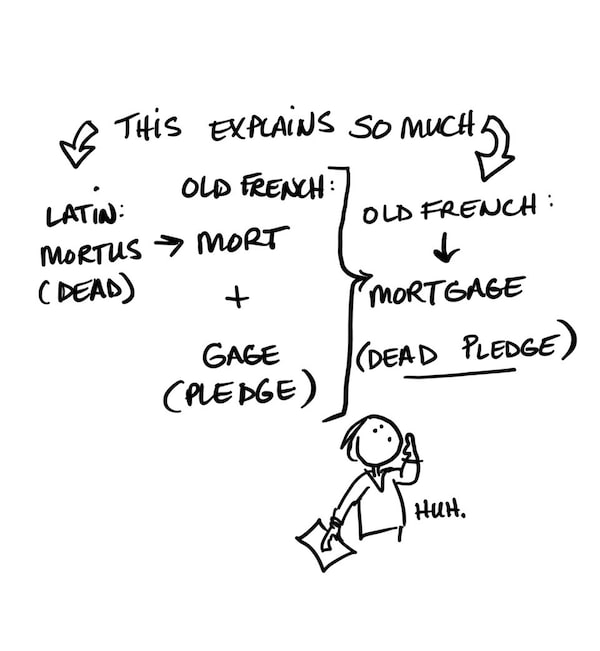 THIS EXPLAINS SO MUCH
LATIN:
MORTUS
(DEAD)
OLD FRENCH:
MORT
+
GAGE
(PLEDGE)
OLD FRENCH:
MORTGAGE
(DEAD PLEDGE)
HUH.